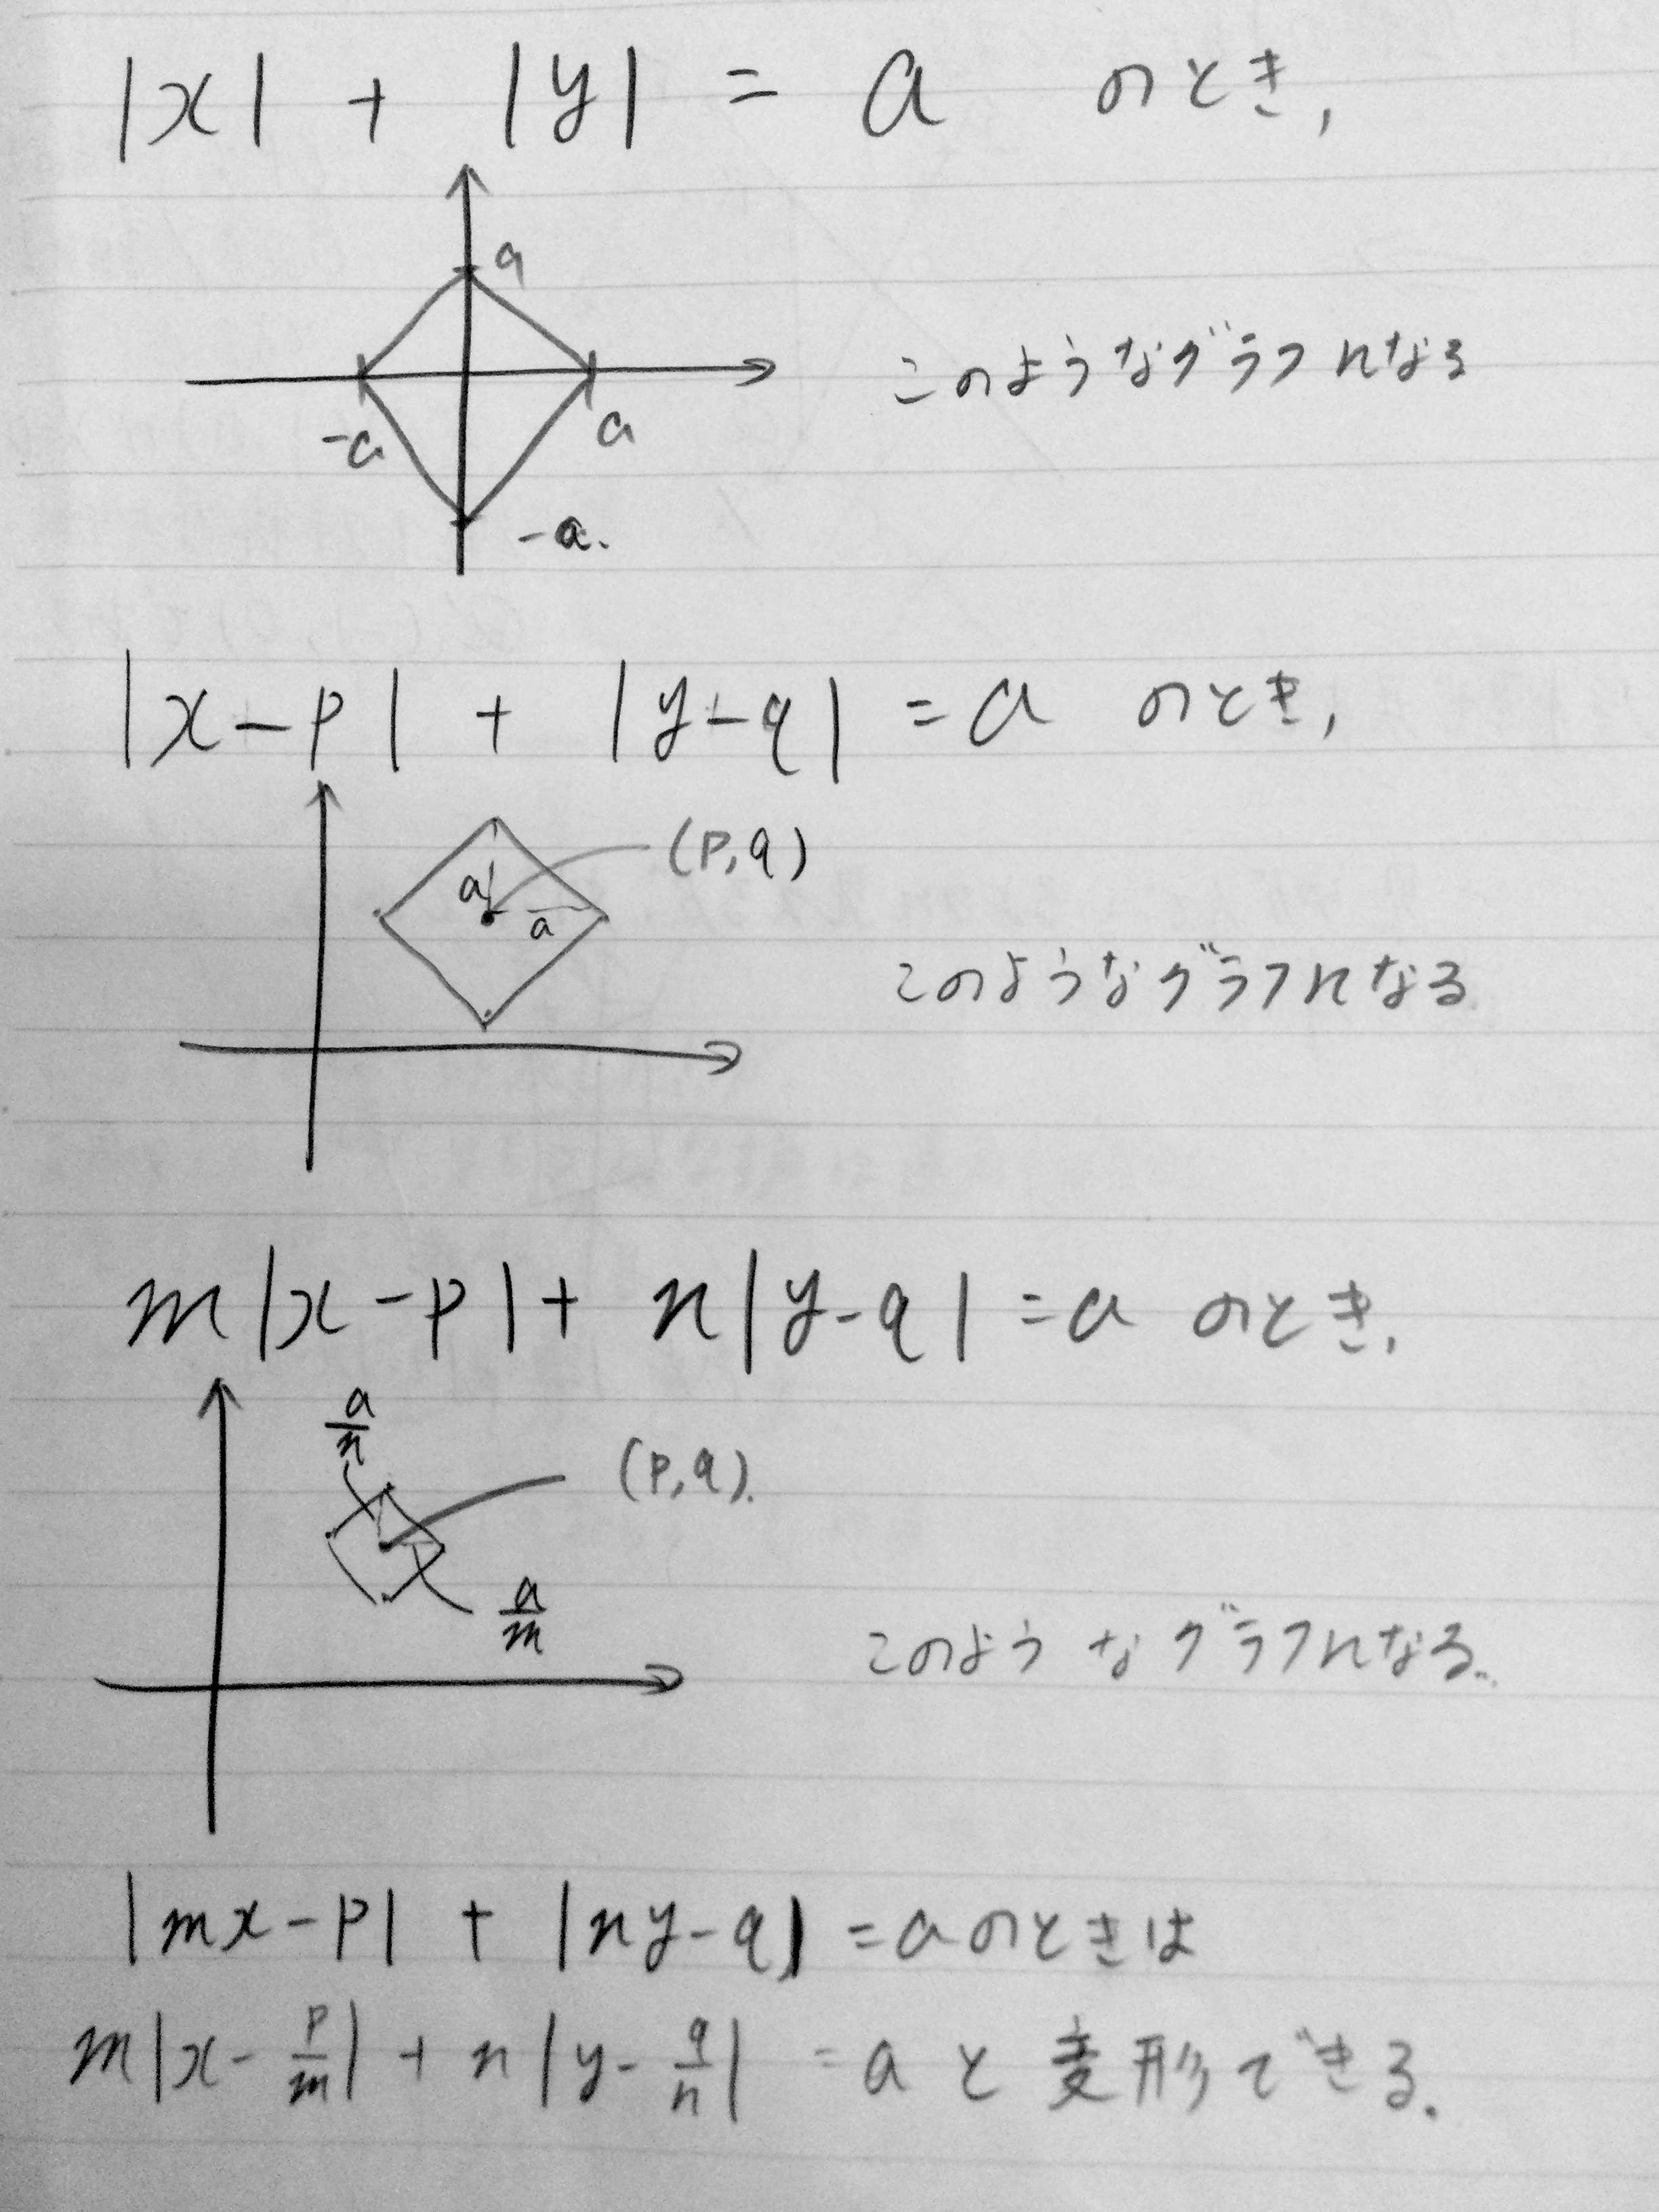 |x| + |y| = a のとき,
a
このようなグラフになる
-a a
-a.
|x-p| + |y-q| = a のとき,
(p,q)
a
a
このようなグラフになる
m|x-p| + n|y-q| = a のとき,
a/n
(p,q).
a/m
このようなグラフになる.
|mx-p| + |ny-q| = a のときは
m|x-p/m| + n|y-q/n| = a と変形できる.